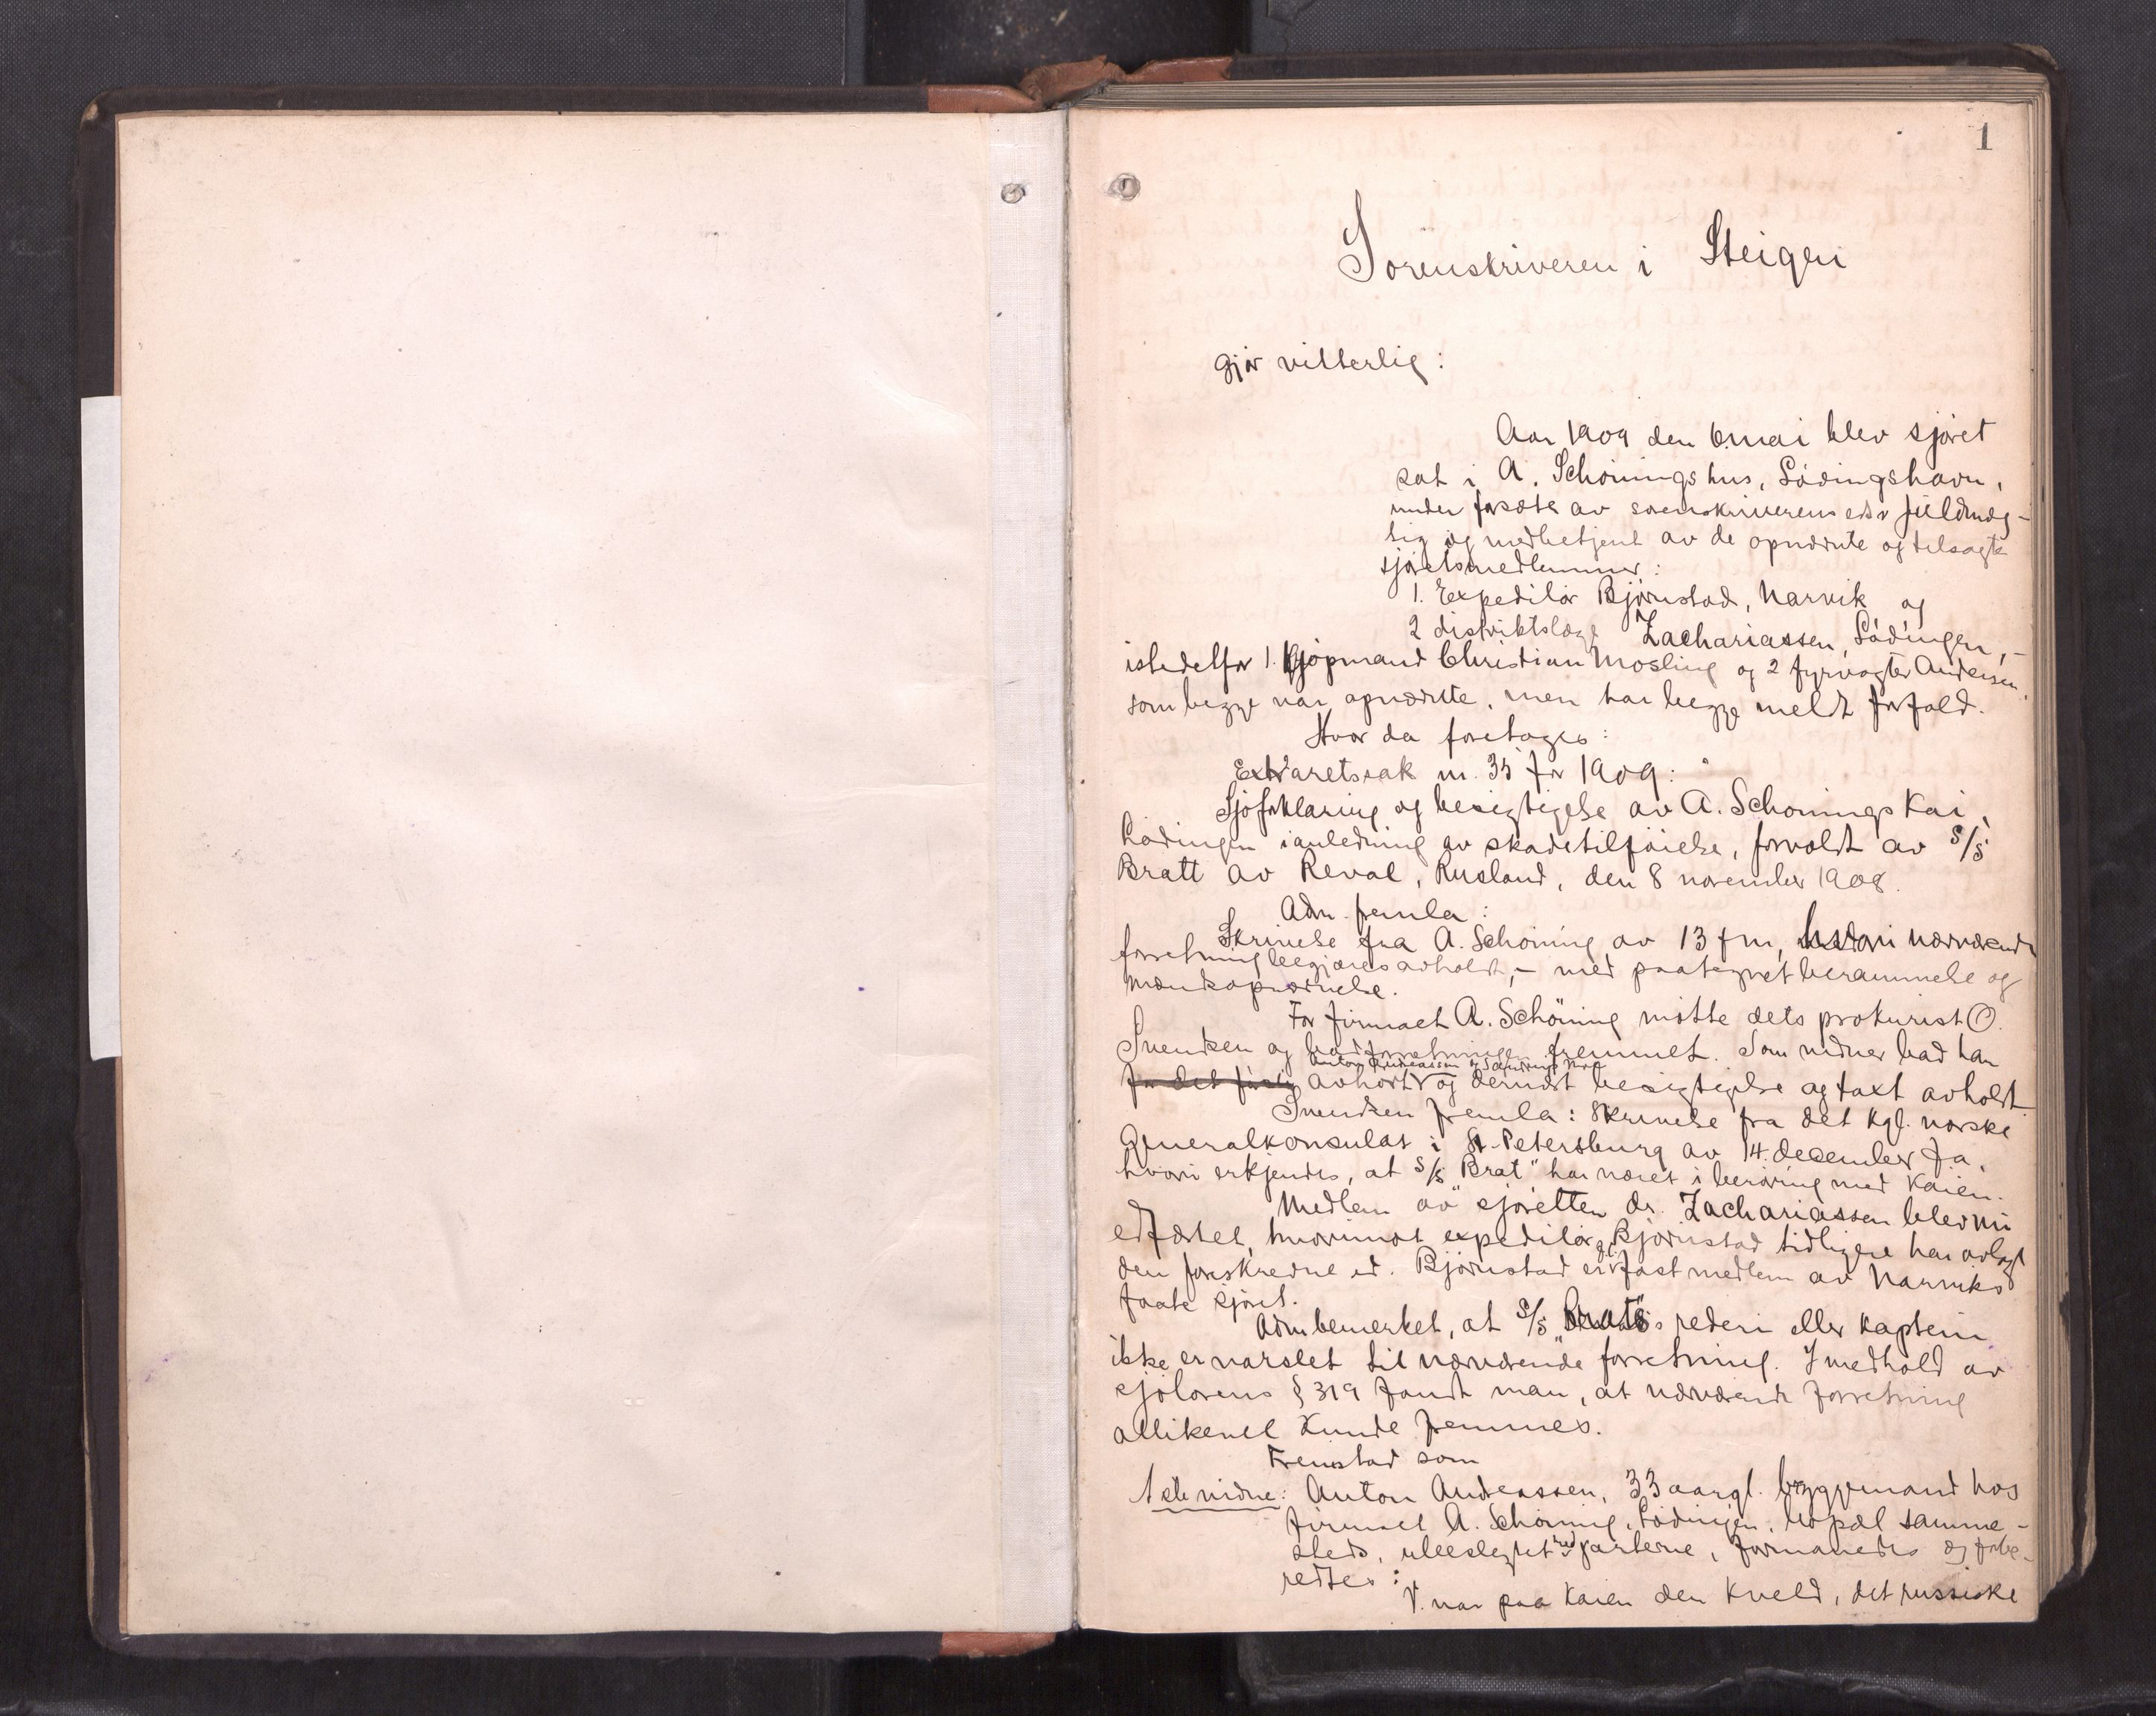 1
Sorenskriveren i Steigen
gjør vitterlig:
Aar 1909 den 6 mai blev sjøret
sat i A. Schönings hus, Lødingshavn,
under forsæte av sorenskriverens edsv fuldmæg-
tig og medbetjent av de opnævnte og tilsagte
sjøretsmedlemmer:
1. Expeditør Bjørnstad, Narvik og
2 distriktslæge Zachariassen, Lødingen,-
istedetfor 1. kjøpmand Christian Mosling og 2 fyrvogter Andersen,
som begge var opnævnte, men har begge meldt forfald.
Hvor da foretoges:
Extraretssak nr. 35 for 1909:
Sjøforklaring og besigtigelse av A. Schønings Kai,
Lødingen ianledning av skadetilføielse, forvoldt av S/S
Bratt av Reval, Rusland, den 8 november 1908.
Adm. fremla:
Skrivelse fra A. Schöning av 13 f m, hvori nærværende
forretning begjæres avholdt,- med paategnet berammelse og
mændsopnævnelse.
For firmaet A. Schöning møtte dets prokurist O.
Svendsen og bad forretningen fremmet. Som vidner bad han
Anton Andreassen og
for det første avhørt og dernæst besigtigelse og taxt avholdt
Svendsen fremla: Skrivelse fra det kgl. norske
Generalkonsulat i St. Petersburg av 14. december f.a.
hvori erkjendes, at S/S "Brat" har været i berøring med Kaien.
Medlem av sjøretten dr. Zachariassen blev nu
edfæstet, hvorimot expeditør Bjørnstad tidligere har avlagt
den foreskrevne ed. Bjørnstad er fast medlem av Narviks
faste sjøret.
Adm bemerket, at S/S "Brat"s rederi eller kaptein
ikke er varslet til nærværende forretning. I medhold av
sjølovens § 319 fandt man, at nærværende forretning
allikevel kunde fremmes.
Fremstod som
1ste vidne: Anton Andreassen, 33 aargl. bryggemand hos
firmaet A. Schöning, Lødingen, bopæl samme-
steds, ubeslegtet med parterne, formanedes og forbe-
redtes:
V. var paa Kaien den kveld, det russiske